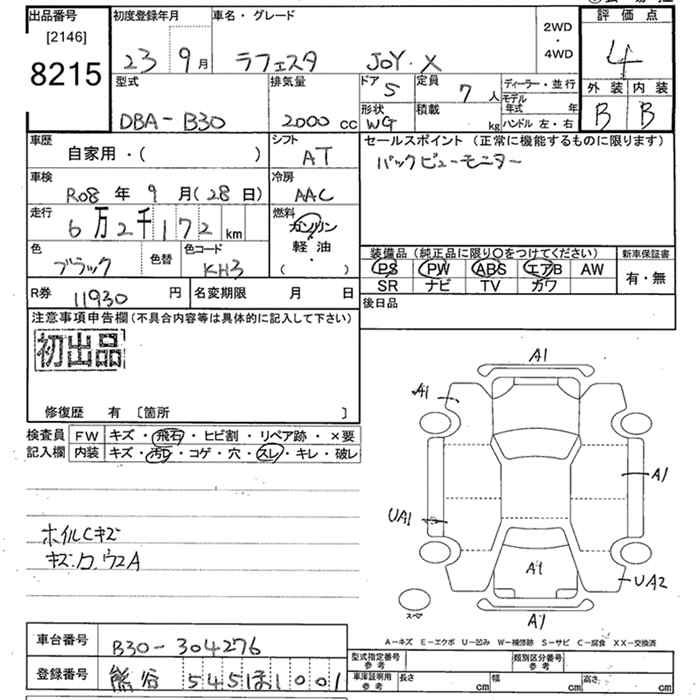 出品番号 初度登録年月 車名・グレード 2WD・4WD 評価点
[2146]
8215 23 9月 ラフェスタ JOY・X 4
型式 排気量 ドア 5 定員 7人 ディーラー・並行 外装 内装
モデル年式 年
DBA-B30 2000cc 形状 WG 積載 kg ハンドル 左・右 B B
車歴 シフト セールスポイント (正常に機能するものに限ります)
自家用・( ) AT バックビューモニター
車検 冷房
R08年 9月(28日) AAC
走行 燃料
6万2千172km ガソリン
軽油
( )
色 色替 色コード 装備品(純正品に限り○をつけてください) 新車保証書
ブラック KH3 PS PW ABS エアB AW 有・無
SR ナビ TV カワ
R券 11930円 名変期限 月 日 後日品
注意事項申告欄(不具合内容等は具体的に記入して下さい)
初出品
修復歴 有 [箇所 ]
検査員 FW キズ・飛石・ヒビ割・リペア跡・×要
記入欄 内装 キズ・汚レ・コゲ・穴・スレ・キレ・破レ
A1
A1
A1
UA1
A1
UA2
A1
スペア
ホイルCキズ
A-キズ E-エクボ U-凹み W-補修跡 S-サビ C-腐食 XX-交換済
車台番号 B30-304276
登録番号 熊谷 545 ほ 1001
型式指定番号 参考 類別区分番号 参考
車庫証明用 参考 長さ cm 幅 cm 高さ cm